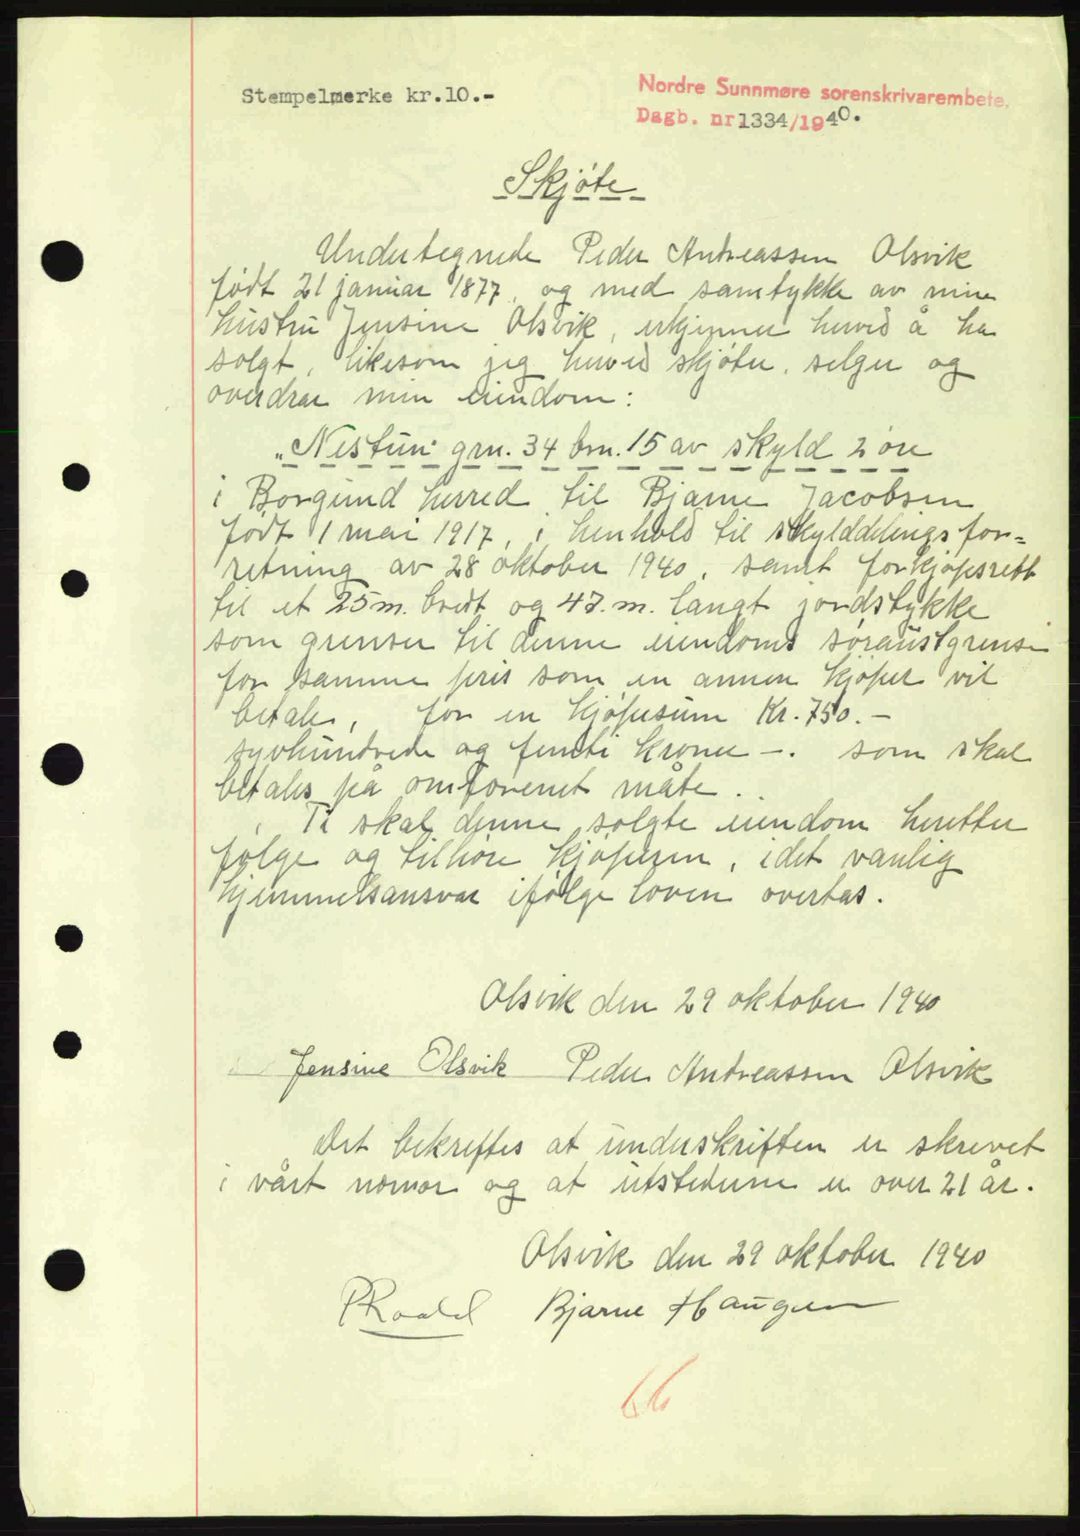 Stempelmerke kr.10.-
Nordre Sunnmøre sorenskrivarembete.
Dagb. nr 1334/1940.
Skjøte
Undertegnede Peder Andreassen Olsvik
født 21 januar 1877, og med samtykke av min
hustru Jensine Olsvik, erkjenner herved å ha
solgt, likesom jeg herved skjøter, selger og
overdrar min eiendom:
„Nestun" grn. 34 brn. 15 av skyld 2 øre
i Borgund herred til Bjarne Jacobsen
født 1 mai 1917, i henhold til skylddelingsfor=
retning av 28 oktober 1940, samt forkjøpsrett
til et 25 m. bredt og 47. m. langt jordstykke
som grenser til denne eiendoms søraustgrense
for samme pris som en annen kjøper vil
betale, for en kjøpesum Kr. 750.-
syvhundrede og femti kroner -. som skal
betales på omforenet måte.
Ti skal denne solgte eiendom heretter
følge og tilhøre kjøperen, idet vanlig
hjemmelsansvar ifølge loven overtas.
Olsvik den 29 oktober 1940
Jensine Olsvik Peder Andreassen Olsvik
Det bekreftes at underskriften er skrevet
i vårt nærvær og at utstederne er over 21 år.
Olsvik den 29 oktober 1940
PRoald Bjarne Haugen
66